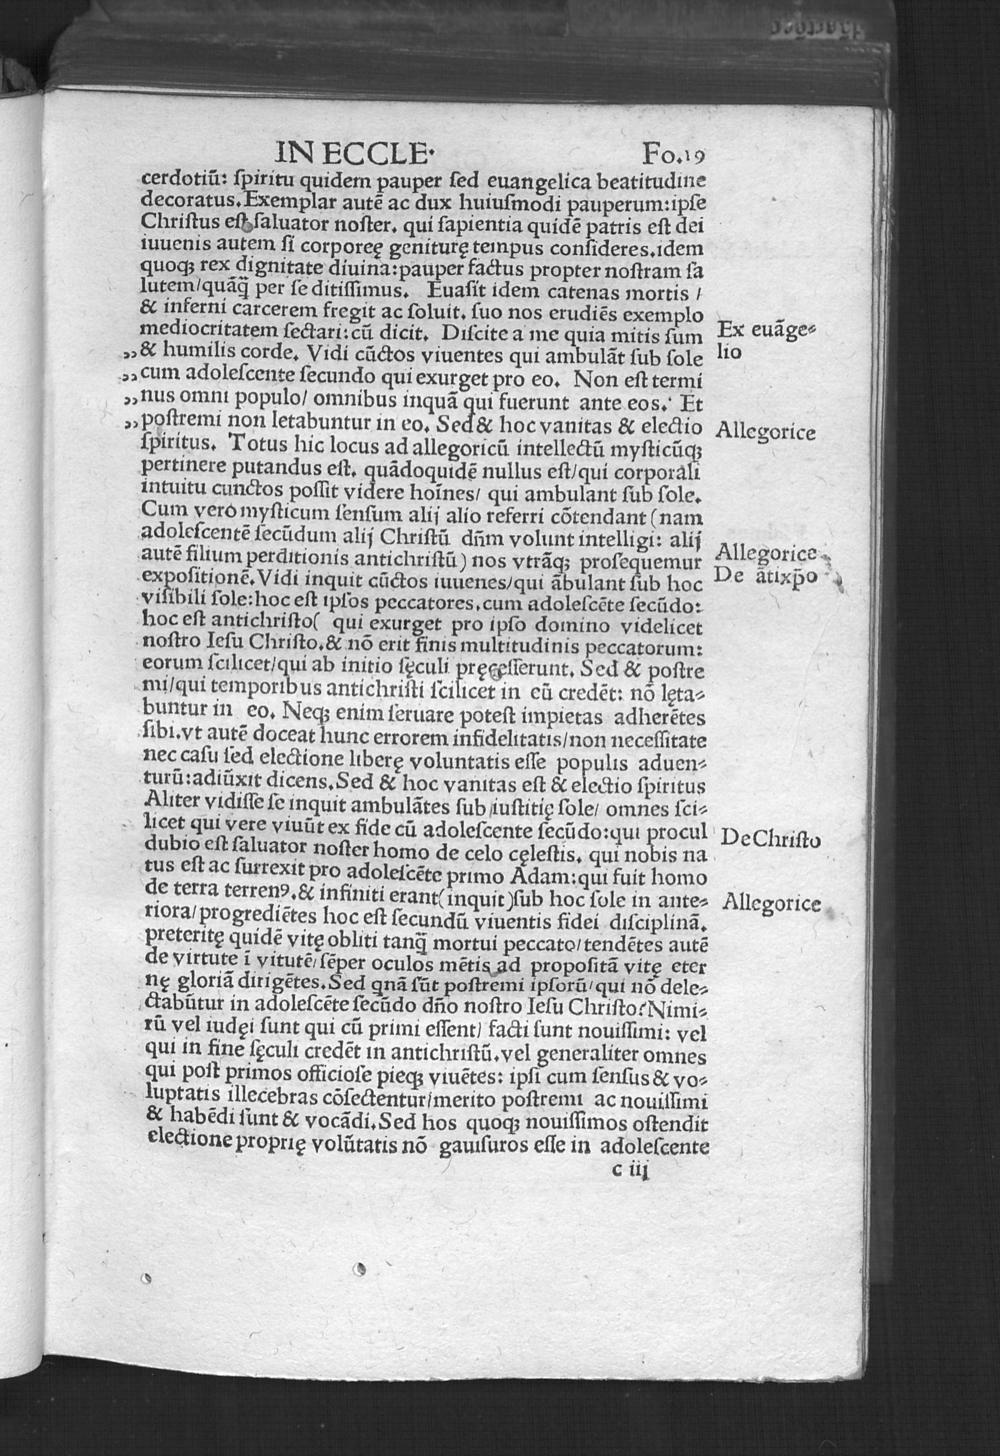 IN ECCLE·
Fo.19
cerdotiū: ſpiritu quidem pauper ſed euangelica beatitudine
decoratus.Exemplar autē ac dux huiuſmodi pauperum:ipſe
Chriſtus eſt ſaluator noſter. qui ſapientia quidē patris eſt dei
iuuenis autem ſi corporeę geniturę tempus conſideres.idem
quoqꝫ rex dignitate diuina:pauper factus propter noſtram ſa
lutem/quāq̄ per ſe ditiſſimus. Euaſit idem catenas mortis /
& inferni carcerem fregit ac ſoluit. ſuo nos erudiēs exemplo
mediocritatem ſectari:cū dicit. Diſcite a me quia mitis ſum
Ex euāge⸗
lio
„& humilis corde. Vidi cūctos viuentes qui ambulāt ſub ſole
„cum adoleſcente ſecundo qui exurget pro eo. Non eſt termi
„nus omni populo/ omnibus inquā qui fuerunt ante eos. Et
„poſtremi non letabuntur in eo. Sed & hoc vanitas & electio
Allegorice
ſpiritus. Totus hic locus ad allegoricū intellectū myſticūqꝫ
pertinere putandus eſt. quādoquidē nullus eſt/qui corporali
intuitu cunctos poſſit videre hoīnes/ qui ambulant ſub ſole.
Cum vero myſticum ſenſum alij alio referri cōtendant (nam
adoleſcentē ſecūdum alij Chriſtū dn̄m volunt intelligi: alij
autē filium perditionis antichriſtū) nos vtrāqꝫ proſequemur
Allegorice
De ātixp̄o
expoſitionē.Vidi inquit cūctos iuuenes/qui ābulant ſub hoc
viſibili ſole:hoc eſt ipſos peccatores.cum adoleſcēte ſecūdo:
hoc eſt antichriſto( qui exurget pro ipſo domino videlicet
noſtro Ieſu Chriſto.& nō erit finis multitudinis peccatorum:
eorum ſcilicet/qui ab initio ſęculi pręceſſerunt. Sed & poſtre
mi/qui temporibus antichriſti ſcilicet in eū credēt: nō lęta⸗
buntur in eo. Neqꝫ enim ſeruare poteſt impietas adherētes
ſibi.vt autē doceat hunc errorem infidelitatis/non neceſſitate
nec caſu ſed electione liberę voluntatis eſſe populis aduen⸗
turū:adiūxit dicens.Sed & hoc vanitas eſt & electio ſpiritus
Aliter vidiſſe ſe inquit ambulātes ſub iuſtitię ſole/ omnes ſci⸗
licet qui vere viuūt ex fide cū adoleſcente ſecūdo:qui procul
De Chriſto
dubio eſt ſaluator noſter homo de celo cęleſtis. qui nobis na
tus eſt ac ſurrexit pro adoleſcēte primo Adam:qui fuit homo
de terra terrenꝰ.& infiniti erant(inquit)ſub hoc ſole in ante⸗
Allegorice
riora/progrediētes hoc eſt ſecundū viuentis fidei diſciplinā.
preteritę quidē vitę obliti tanq̄ mortui peccato/tendētes autē
de virtute ī vitutē/ſēper oculos mētis ad propoſitā vitę eter
nę gloriā dirigētes.Sed qnā ſūt poſtremi ipſorū/qui nō dele⸗
ctabūtur in adoleſcēte ſecūdo dn̄o noſtro Ieſu Chriſto?Nimi⸗
rū vel iudęi ſunt qui cū primi eſſent/ facti ſunt nouiſſimi: vel
qui in fine ſęculi credēt in antichriſtū.vel generaliter omnes
qui poſt primos officioſe pieqꝫ viuētes: ipſi cum ſenſus & vo⸗
luptatis illecebras cōſectentur/merito poſtremi ac nouiſſimi
& habēdi ſunt & vocādi.Sed hos quoqꝫ nouiſſimos oſtendit
electione proprię volūtatis nō gauiſuros eſſe in adoleſcente
c iij